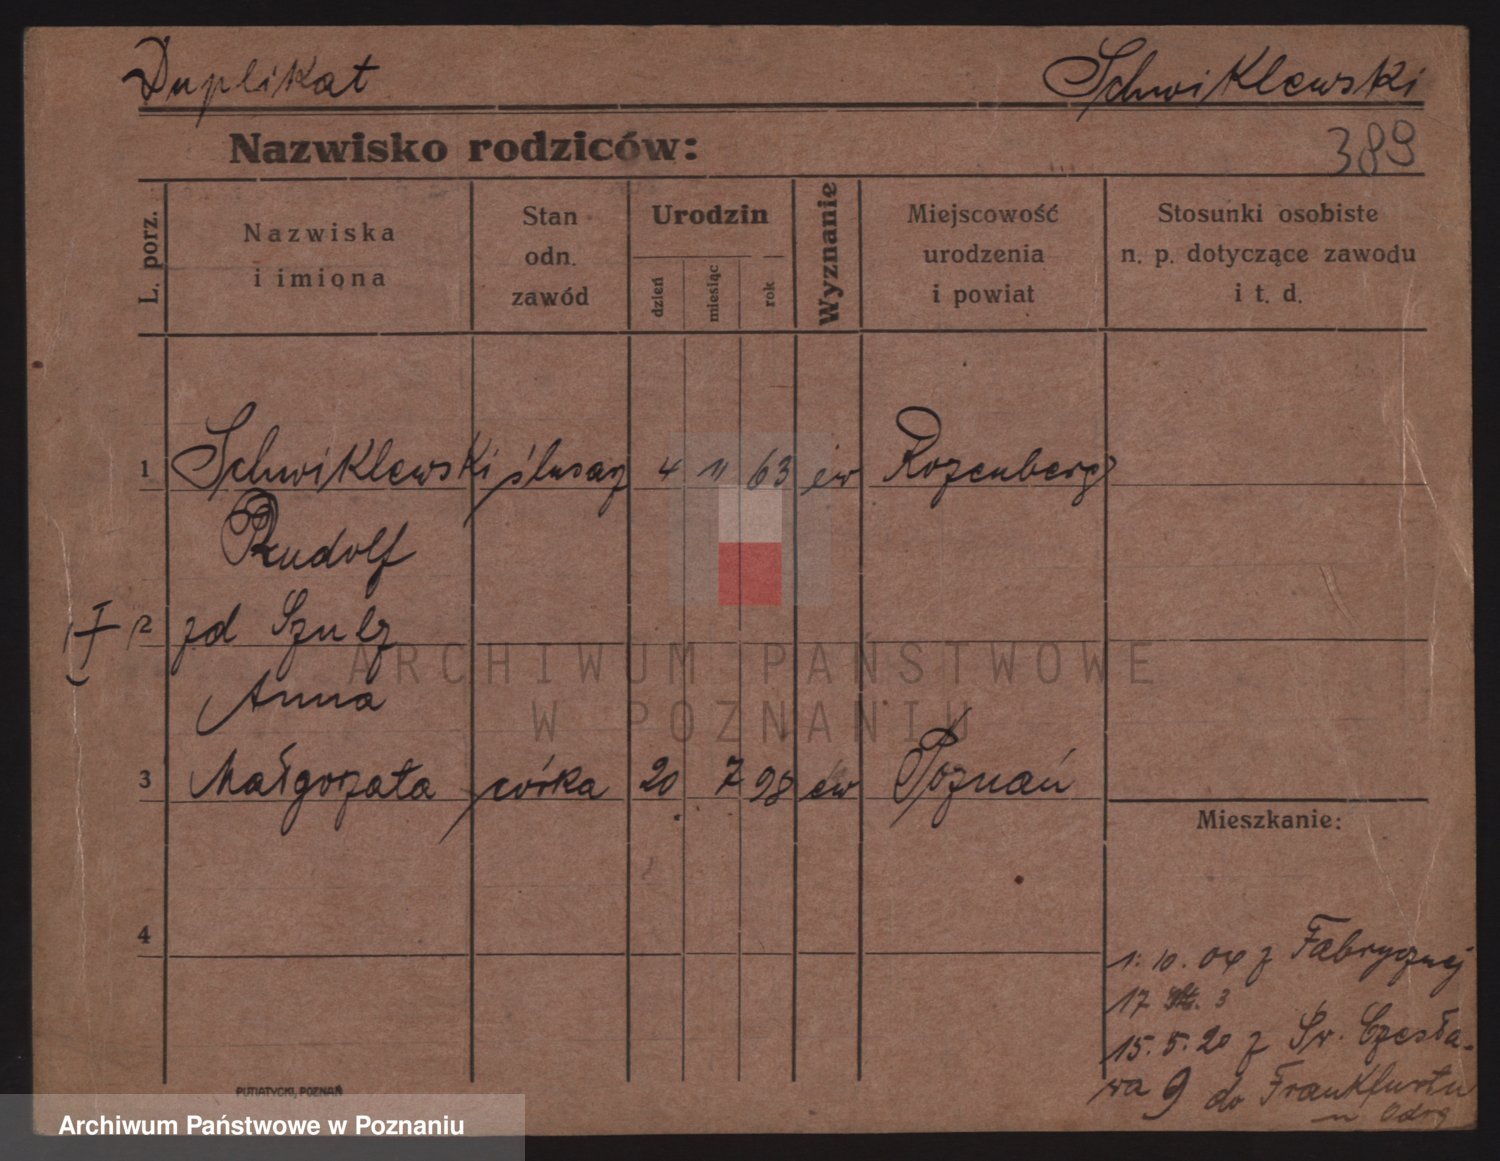 Duplikat Schwiklewski
Nazwisko rodziców: 389
L. porz. Nazwiska i imiona Stan odn. zawód Urodzin dzień miesiąc rok Wyznanie Miejscowość urodzenia i powiat Stosunki osobiste n. p. dotyczące zawodu i t. d.
1 Schwiklewski ślusarz 4 11 63 ew Rozenberg
Rudolf
2 zd Szulz
Anna
3 Małgorzata córka 20 7 98 ew Poznań
Mieszkanie:
4
1. 10. 04 z Fabrycznej
17 3
15. 5. 20 z Św. Czesła-
wa 9 do Frankfurtu
n Odrą
PUTIATYCKI, POZNAŃ
ARCHIWUM PAŃSTWOWE
W POZNANIU
Archiwum Państwowe w Poznaniu